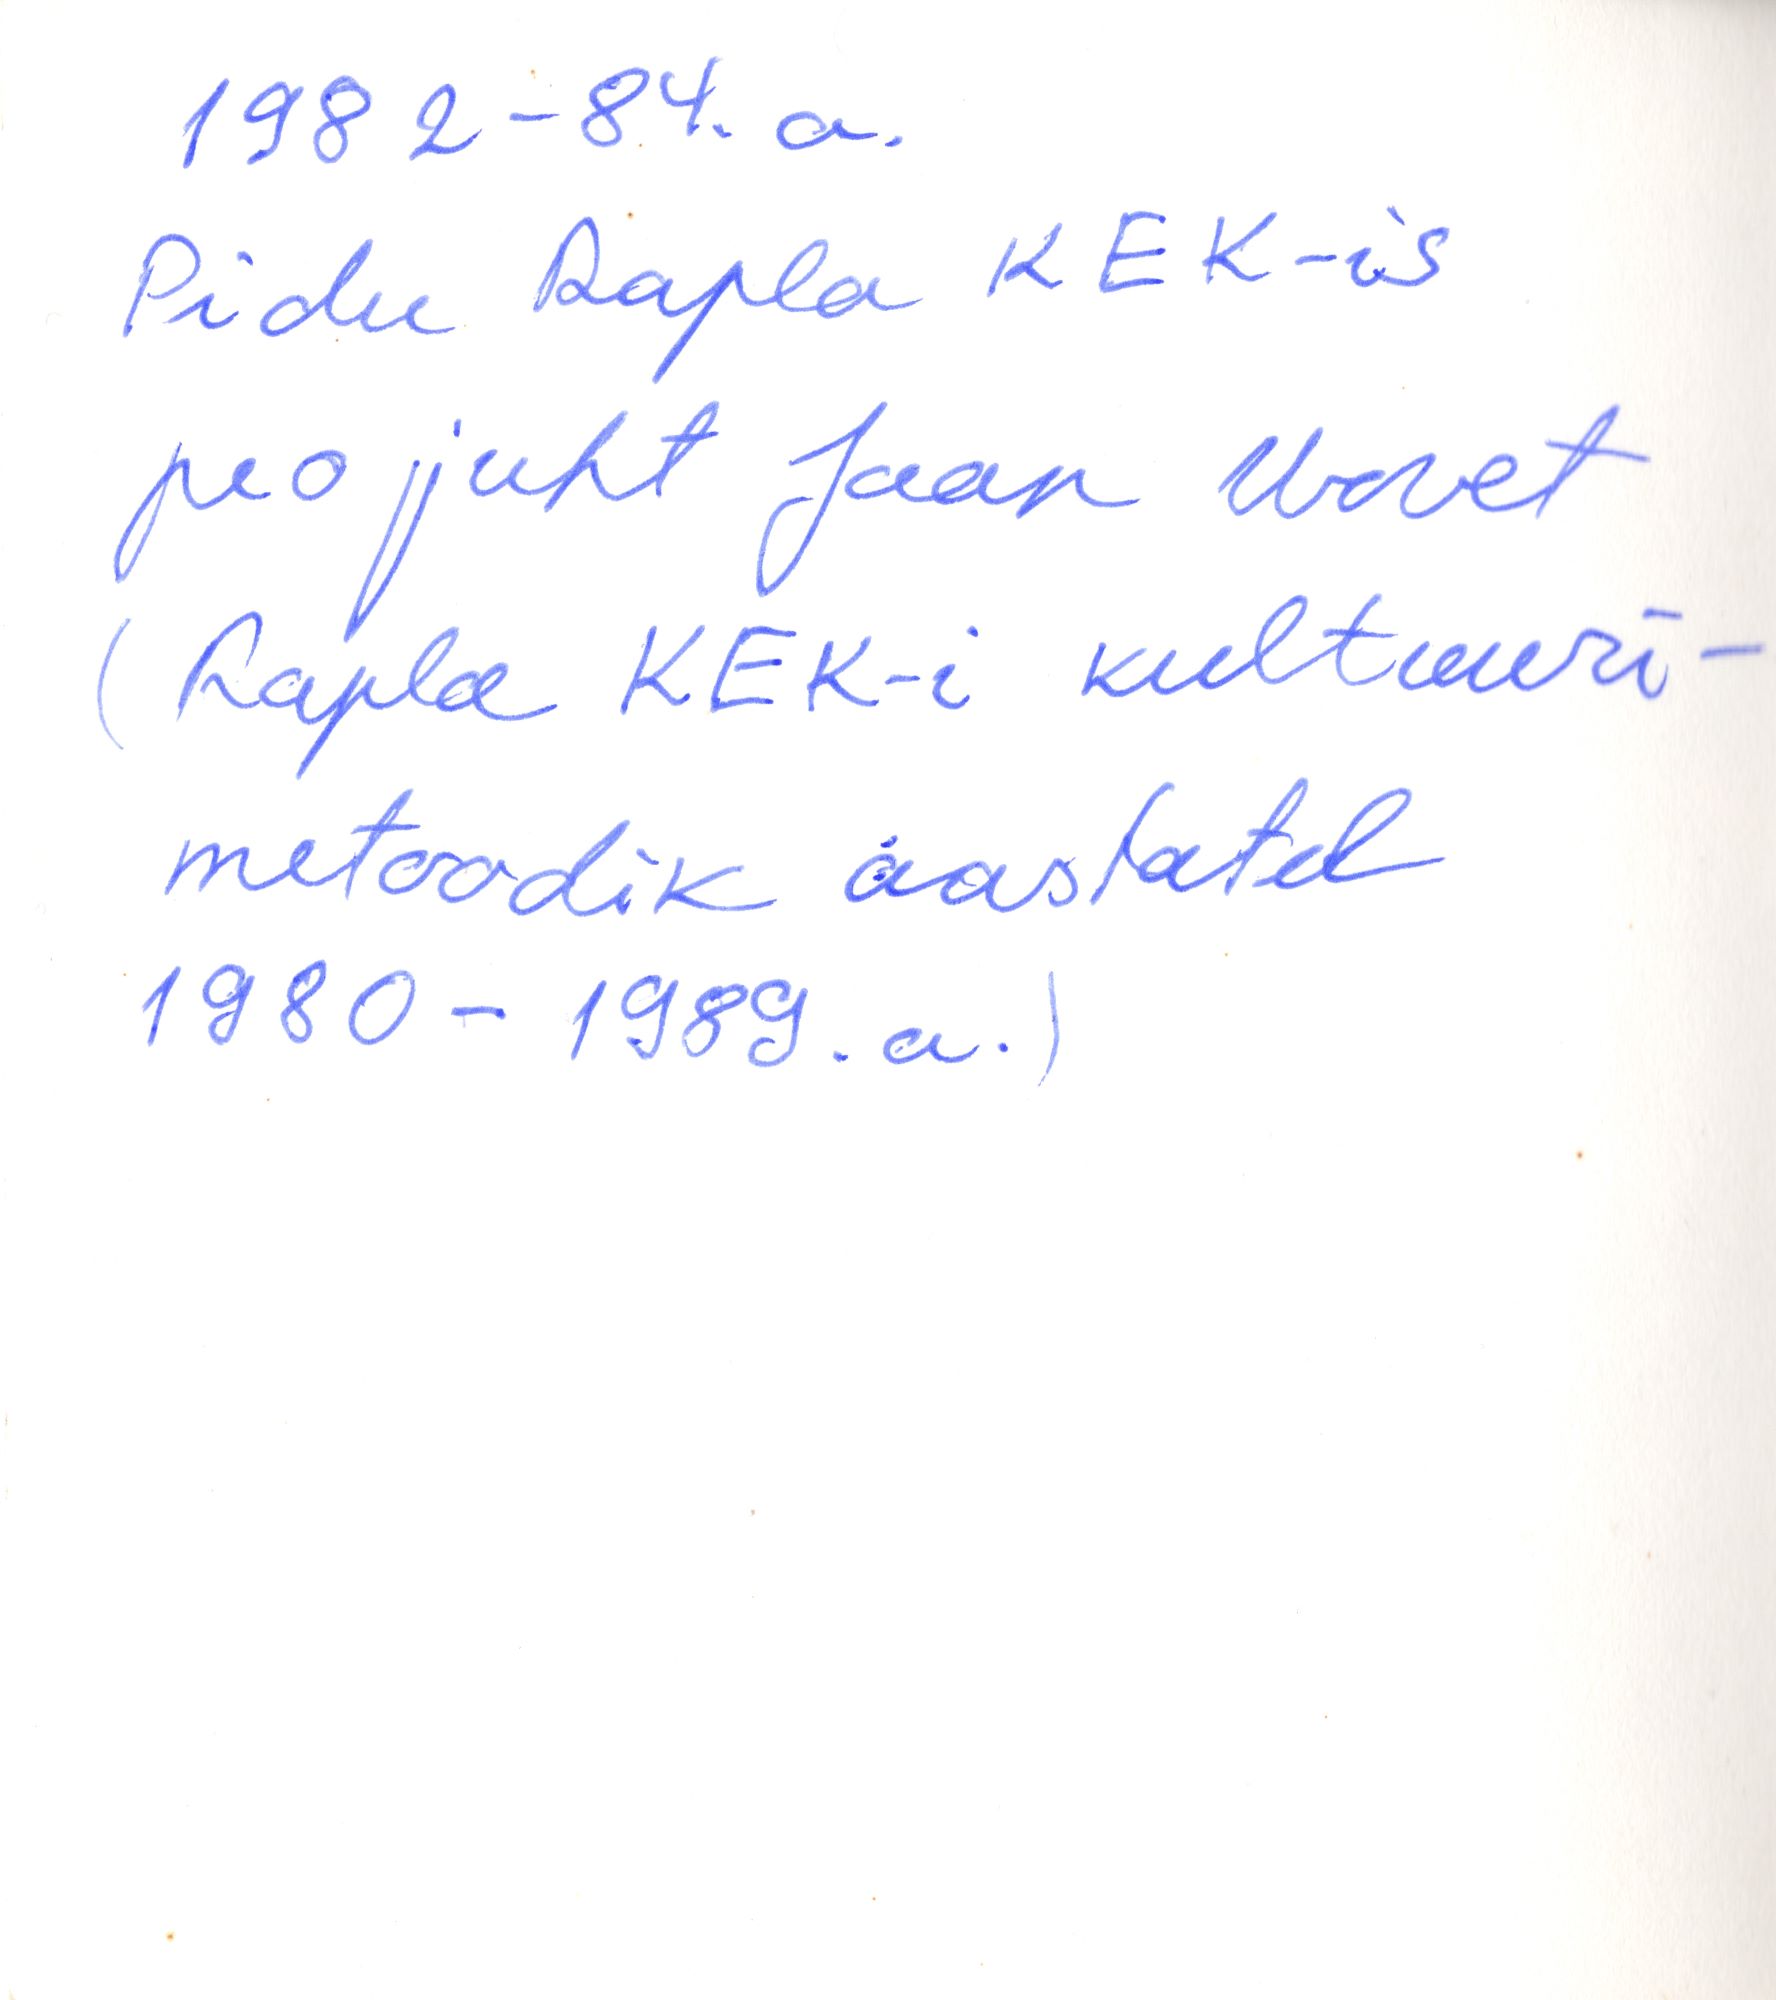 1982-84. a.
Pidu Rapla KEK-is
peo juht Jaan
(Rapla KEK-i kultuuri-
metoodik aastatel
1980-1989. a.)